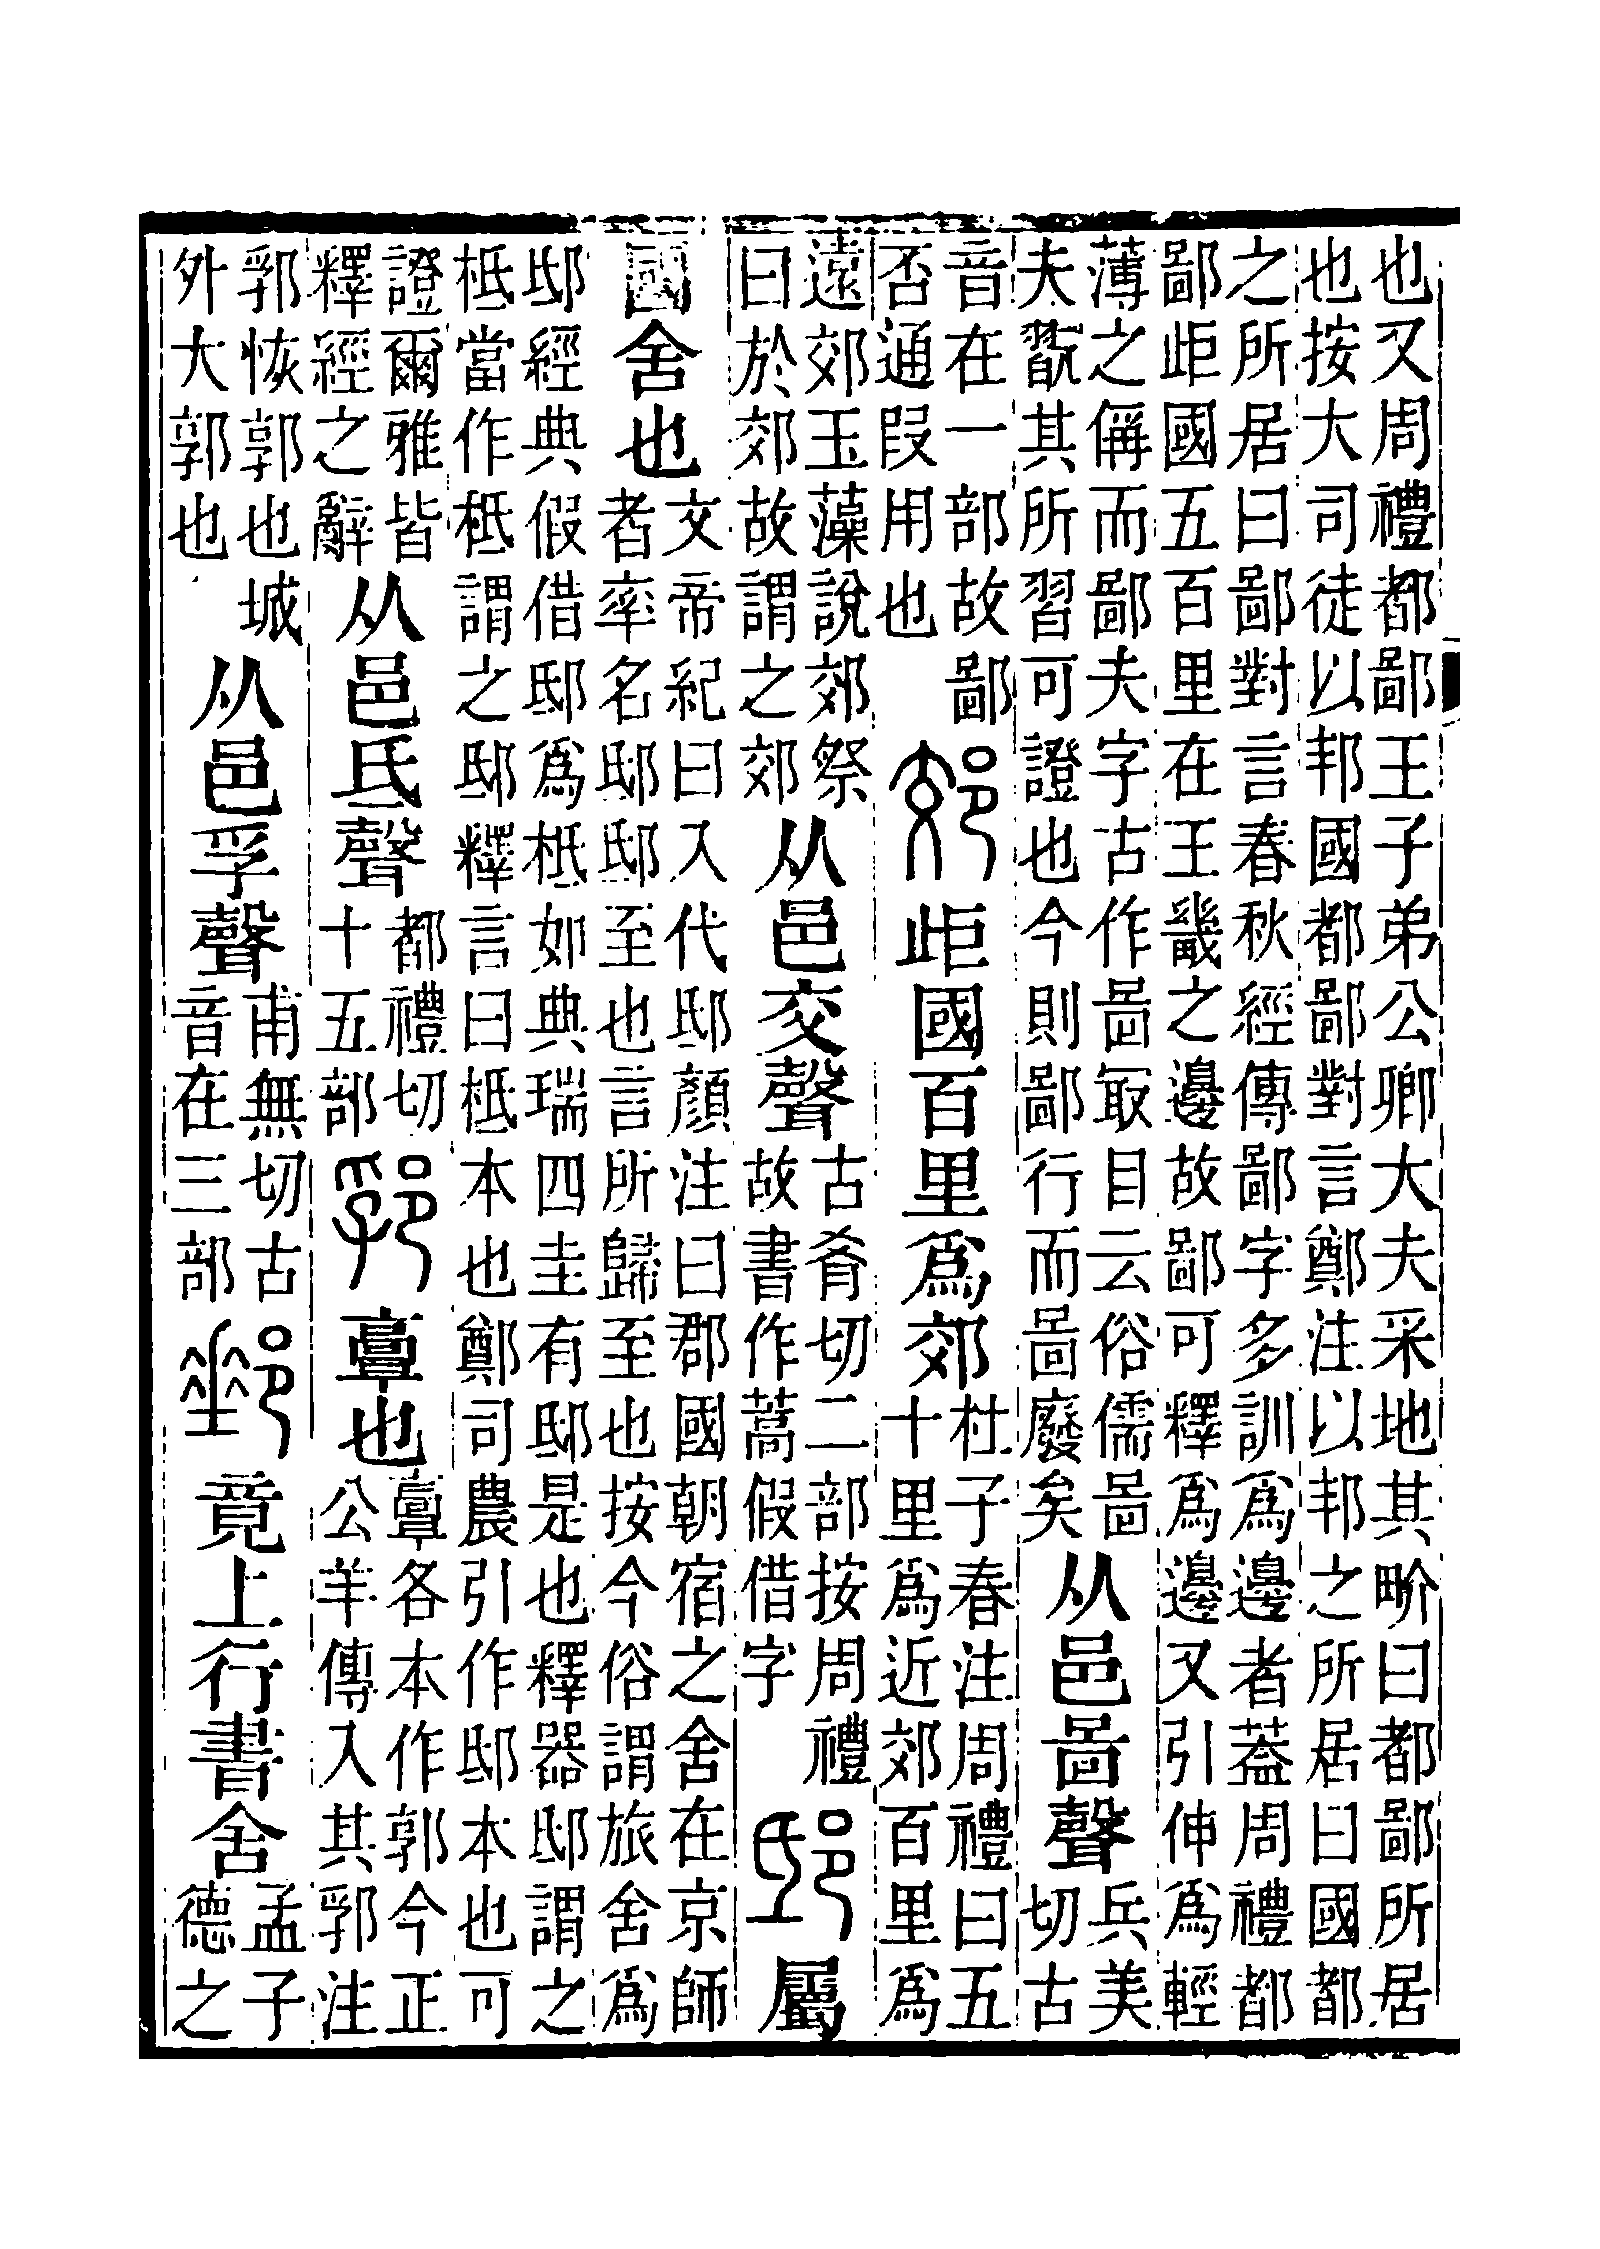 也又周禮都鄙王子弟公卿大夫采地其畍曰都鄙所居
也按大司徒以邦國都鄙對言鄭注以邦之所居曰國都
之所居曰鄙對言春秋經傳鄙字多訓爲邊者葢周禮都
鄙歫國五百里在王畿之邊故鄙可釋爲邊又引伸爲輕
薄之偁而鄙夫字古作啚冣目云俗儒啚
夫翫其所習可證也今則鄙行而啚廢矣
从邑啚聲
兵美
切古
音在一部故鄙
否通叚用也
郊
歫國百里爲郊
杜子春注周禮曰五
十里爲近郊百里爲
遠郊玉藻說郊祭
曰於郊故謂之郊
从邑交聲
古肴切二部按周禮
故書作蒿假借字
邸
屬
國舍也
文帝紀曰入代邸顏注曰郡國朝宿之舍在京師
者率名邸邸至也言所歸至也按今俗謂旅舍爲
邸經典假借邸爲柢如典瑞四圭有邸是也釋器邸謂之
柢當作柢謂之邸釋言曰柢本也鄭司農引作邸本也可
證爾雅皆
釋經之辭
从邑氐聲
都禮切
十五部
郛
𩫏也
𩫏各本作郭今正
公羊傳入其郛注
郛恢郭也城
外大郭也
从邑孚聲
甫無切古
音在三部
郵
竟上行書舍
孟子
德之